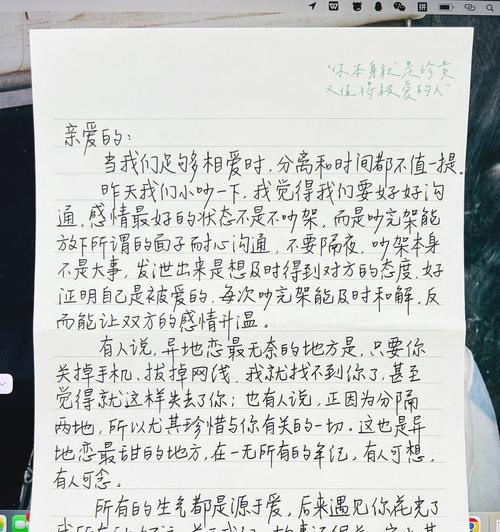 "你本身就是珍贵
又值得被爱的人"
亲爱的:
当我们足够相爱时,分离和时间都不值一提.
昨天我们小吵一下,我觉得我们要好好沟
通,感情最好的状态不是不吵架,而是吵完架能
放下所谓的面子耐心沟通,不要隔夜.吵架本身
不是大事,发泄出来是想及时得到对方的态度,好
证明自己是被爱的,每次吵完架能及时和解,反
而能让双方的感情升温。
有人说,异地恋最无奈的地方是,只要你
关掉手机、拔掉网线,我就找不到你了,甚至
觉得就这样失去了你;也有人说,正因为分隔
两地,所以尤其珍惜与你有关的一切.这也是异
地恋最甜的地方,在一无所有的年纪,有人可想,
有人可念。
所有的生气都是源于爱,后来遇见你花光了